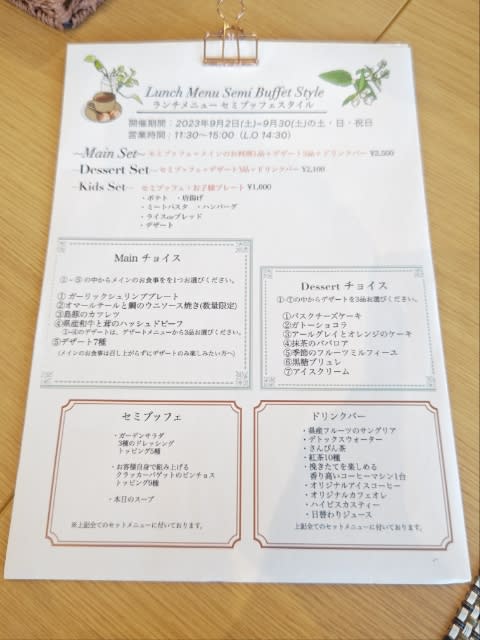 Lunch Menu Semi Buffet Style
ランチメニュー セミブッフェスタイル
開催期間：2023年9月2日(土)~9月30(土)の土・日・祝日
営業時間：11:30~15:00（L.O 14:30）
~Main Set~ セミブッフェ+メインのお料理1品+デザート3品+ドリンクバー ¥2,500
~Dessert Set~ セミブッフェ+デザート3品+ドリンクバー ¥2,100
~Kids Set~ セミブッフェ+お子様プレート ¥1,600
・ポテト ・唐揚げ
・ミートパスタ ・ハンバーグ
・ライスorブレッド
・デザート
Main チョイス
①~⑤の中からメインのお食事をを1つお選びください。
① ガーリックシュリンププレート
②オマールテールと鯛のウニソース焼き(数量限定)
③島豚のカツレツ
④県産和牛と茸のハッシュドビーフ
①~④のデザートは、デザートメニューから3品お選びください。
⑤デザート7種
(メインのお食事は召し上がらずにデザートのみ楽しみたい方へ)
Dessert チョイス
①~⑦の中からデザートを3品お選びください。
①バスクチーズケーキ
②ガトーショコラ
③アールグレイとオレンジのケーキ
④抹茶のババロア
⑤季節のフルーツミルフィーユ
⑥黒糖ブリュレ
⑦アイスクリーム
セミブッフェ
・ガーデンサラダ
3種のドレッシング
トッピング5種
・お客様自身で組み上げる
クラッカーバゲットのピンチョス
トッピング9種
・本日のスープ
※上記全てのセットメニューに付いております。
ドリンクバー
・県産フルーツのサングリア
・デトックスウォーター
・さんぴん茶
・紅茶10種
・挽きたてを楽しめる
香り高いコーヒーマシン1台
・オリジナルアイスコーヒー
・オリジナルカフェオレ
・ハイビスカスティー
・日替わりジュース
上記全てのセットメニューに付いております。